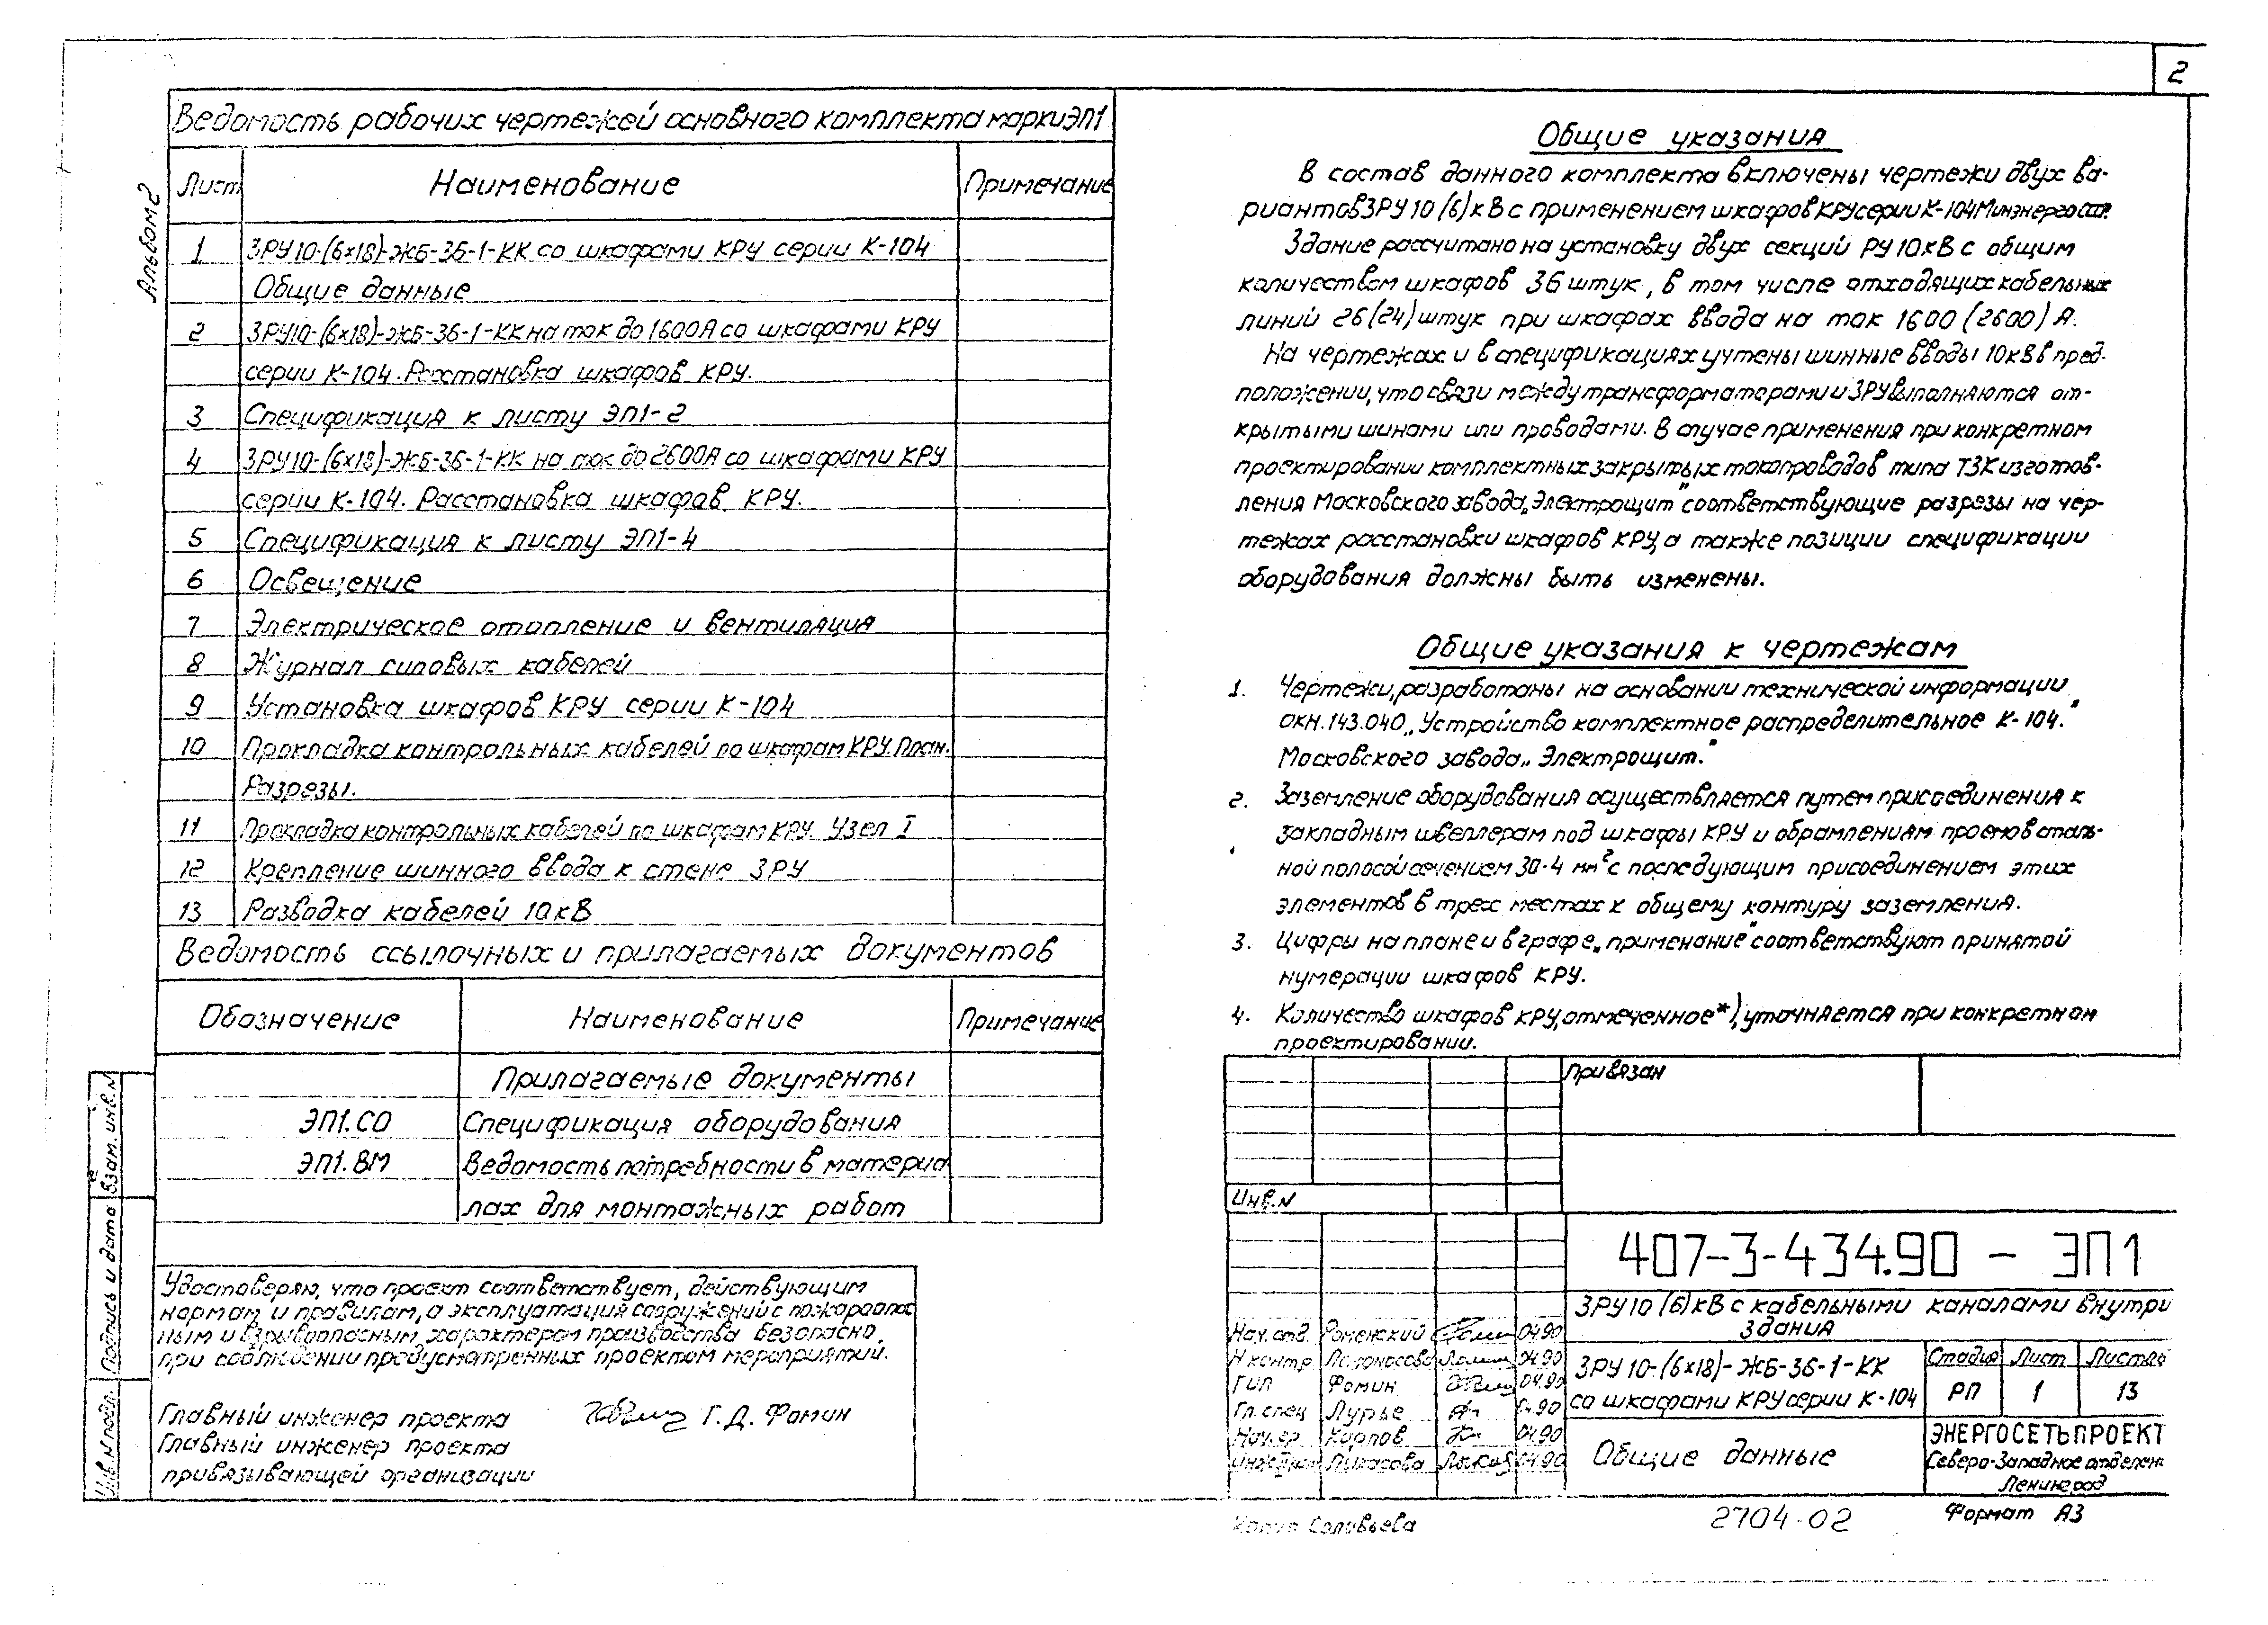 2
Альбом 2
Ведомость рабочих чертежей основного комплекта марки ЭП1
Лист Наименование Примечание
1 ЗРУ10-(6х18)-ЖБ-36-1-КК со шкафами КРУ серии К-104
Общие данные
2 ЗРУ10-(6х18)-ЖБ-36-1-КК на ток до 1600А со шкафами КРУ
серии К-104. Расстановка шкафов КРУ.
3 Спецификация к листу ЭП1-2
4 ЗРУ10-(6х18)-ЖБ-36-1-КК на ток до 2600А со шкафами КРУ
серии К-104. Расстановка шкафов КРУ.
5 Спецификация к листу ЭП1-4
6 Освещение
7 Электрическое отопление и вентиляция
8 Журнал силовых кабелей
9 Установка шкафов КРУ серии К-104
10 Прокладка контрольных кабелей по шкафам КРУ. План.
Разрезы.
11 Прокладка контрольных кабелей по шкафам КРУ. Узел I
12 Крепление шинного ввода к стене ЗРУ
13 Разводка кабелей 10кВ
Ведомость ссылочных и прилагаемых документов
Обозначение Наименование Примечание
Прилагаемые документы
ЭП1.СО Спецификация оборудования
ЭП1.ВМ Ведомость потребности в материа
лах для монтажных работ
Удостоверяю, что проект соответствует, действующим
нормам и правилам, а эксплуатация сооружений с пожароопас
ным и взрывоопасным характером производства безопасно
при соблюдении предусмотренных проектом мероприятий.
Главный инженер проекта Г.Д. Фомин
Главный инженер проекта
привязывающей организации
Взам. инв. N
Подпись и дата
Инв. N подл.
Общие указания
В состав данного комплекта включены чертежи двух ва-
риантов ЗРУ 10 (6) кВ с применением шкафов КРУ серии К-104 Минэнерго СССР.
Здание рассчитано на установку двух секций РУ 10кВ с общим
количеством шкафов 36 штук, в том числе отходящих кабельных
линий 26 (24) штук при шкафах ввода на ток 1600 (2600) А.
На чертежах и в спецификациях учтены шинные вводы 10кВ в пред-
положении, что связи между трансформаторами и ЗРУ выполняются от-
крытыми шинами или проводами. В случае применения при конкретном
проектировании комплектных закрытых токопроводов типа ТЗК изготов-
ления Московского завода „Электрощит" соответствующие разрезы на чер-
тежах расстановки шкафов КРУ, а также позиции спецификации
оборудования должны быть изменены.
Общие указания к чертежам
1. Чертежи, разработаны на основании технической информации
ОКН.143.040 „Устройство комплектное распределительное К-104."
Московского завода „Электрощит."
2. Заземление оборудования осуществляется путем присоединения к
закладным швеллерам под шкафы КРУ и обрамлениям проемов сталь-
ной полосой сечением 30·4 мм² с последующим присоединением этих
элементов в трех местах к общему контуру заземления.
3. Цифры на плане и в графе „примечание" соответствуют принятой
нумерации шкафов КРУ.
4. Количество шкафов КРУ, отмеченное *), уточняется при конкретном
проектировании.
Привязан
Инв. N
407-3-434.90 - ЭП1
ЗРУ 10 (6) кВ с кабельными каналами внутри
здания
Нач. отд. Роменский 04.90
Н контр Ломоносова 04.90
ГИП Фомин 04.90
Гл. спец. Лурье 04.90
Нач. гр. Карпов 04.90
04.90
ЗРУ 10-(6х18)-ЖБ-36-1-КК
со шкафами КРУ серии К-104
Стадия Лист Листов
РП 1 13
Общие данные
ЭНЕРГОСЕТЬПРОЕКТ
Северо-Западное отделен.
Ленинград
Копир Соловьева
2704-02
Формат А3